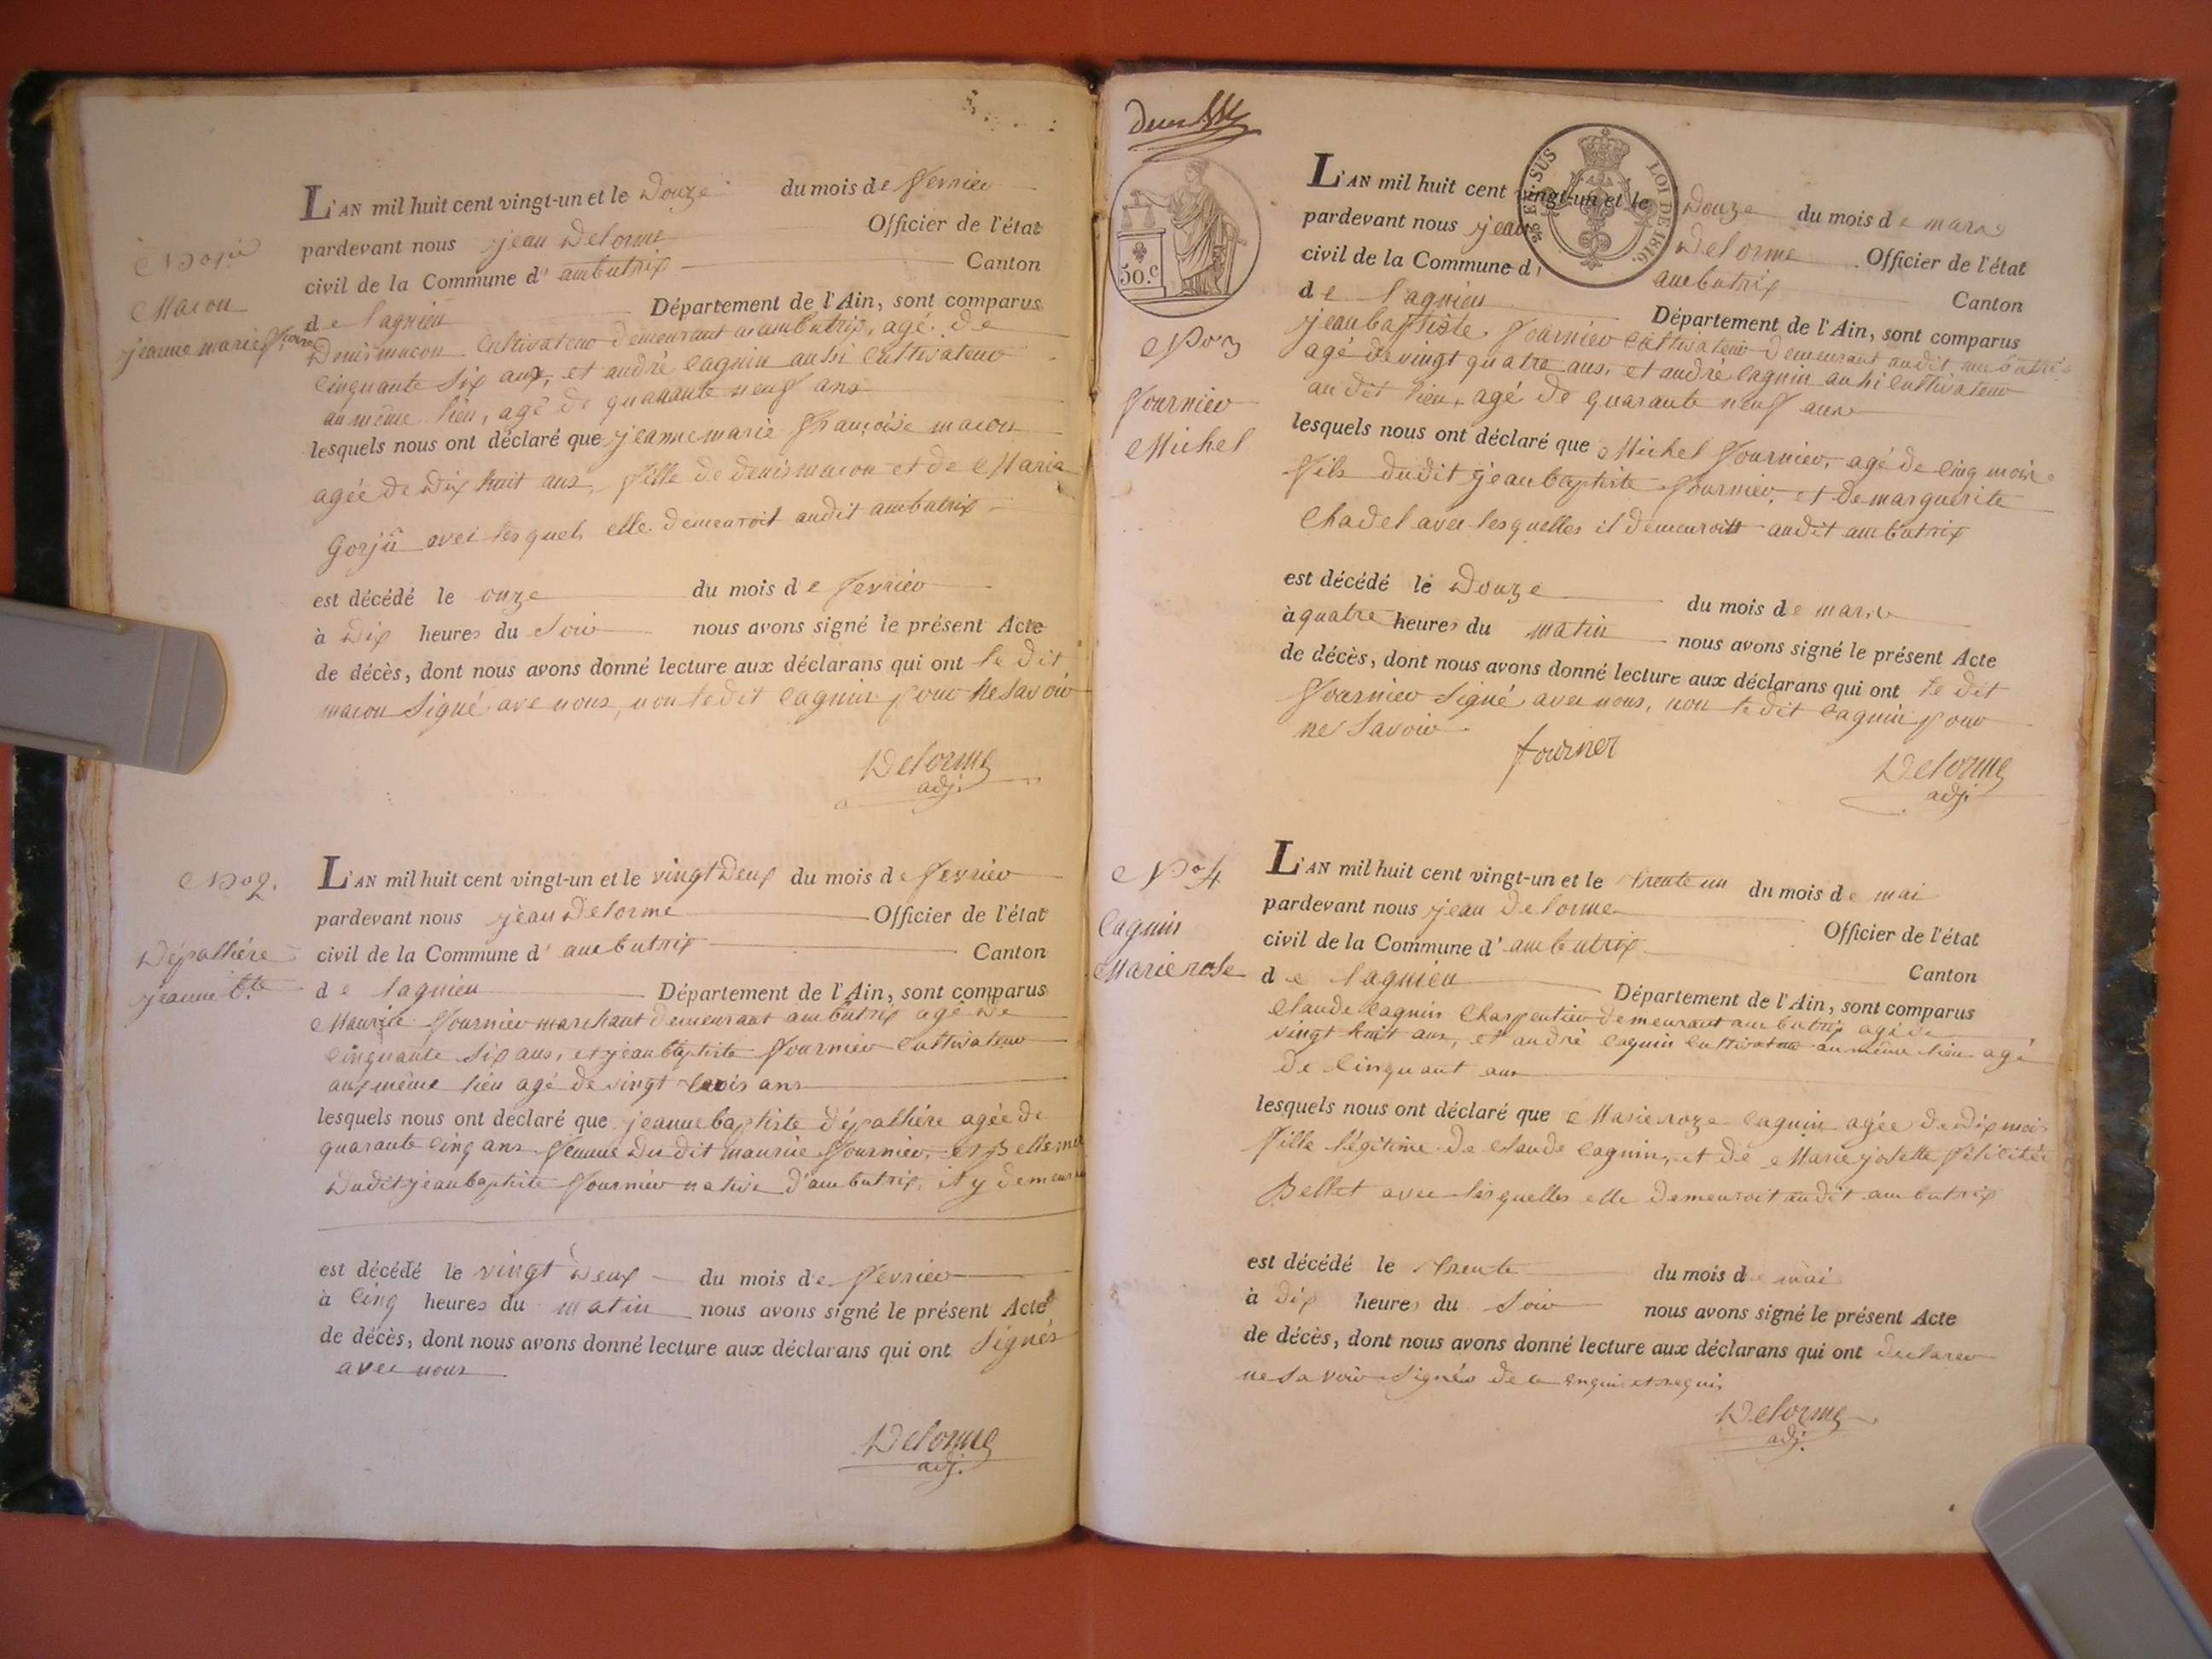 L'AN mil huit cent vingt-un et le Douze du mois de fevrier
pardevant nous jean Delorme Officier de l'état
civil de la Commune d' ambutrix Canton
de lagnieu Département de l'Ain, sont comparus
Denis macon cultivateur demeurant a ambutrix, agé de
cinquante six ans, et andré cagnin aussi cultivateur
au même lieu, agé de quarante neuf ans
lesquels nous ont déclaré que jeanne marie françoise macon
agée de dix huit ans, fille de denis macon et de Maria
Gorju avec lesquels elle demeuroit audit ambutrix
est décédé le onze du mois de fevrier
à Dix heures du Soir nous avons signé le présent Acte
de décès, dont nous avons donné lecture aux déclarans qui ont le dit
macon Signé ave nous, non le dit cagnin pour ne Savoir
Delorme
adj.
Macon
jeanne marie
No 2.
Dépalliére
jeanne bte
L'AN mil huit cent vingt-un et le vingt Deux du mois de fevrier
pardevant nous jean Delorme Officier de l'état
civil de la Commune d' ambutrix Canton
de lagnieu Département de l'Ain, sont comparus
Maurice fournier marchant demeurant ambutrix agé de
cinquante six ans, et jean baptiste fournier cultivateur
au même lieu agé de vingt trois ans
lesquels nous ont déclaré que jeanne baptiste dépalliére agée de
quarante cinq ans femme du dit maurice fournier, et
dudit jean baptiste fournier native d'ambutrix, et y
est décédé le vingt Deux du mois de fevrier
à cinq heures du matin nous avons signé le présent Acte
de décès, dont nous avons donné lecture aux déclarans qui ont Signés
avec nous
Delorme
adj.
50 c.
25 EN SUS
LOI DE 1816.
No 3
fournier
Michel
L'AN mil huit cent vingt-un et le Douze du mois de mars
pardevant nous jean Delorme Officier de l'état
civil de la Commune d' ambutrix Canton
de lagnieu Département de l'Ain, sont comparus
jean baptiste fournier cultivateur demeurant audit ambutrix
agé de vingt quatre ans, et andré cagnin aussi cultivateur
au dit lieu, agé de quarante neuf ans
lesquels nous ont déclaré que Michel fournier, agé de cinq mois
fils dudit jean baptiste fournier, et de marguerite
Chadel avec lesquelles il demeuroit audit ambutrix
est décédé le Douze du mois de mars
à quatre heures du matin nous avons signé le présent Acte
de décès, dont nous avons donné lecture aux déclarans qui ont le dit
fournier Signé avec nous, non le dit cagnin pour
ne Savoir
fournier
Delorme
adj.
No 4
Cagnin
Marie rose
L'AN mil huit cent vingt-un et le trente un du mois de mai
pardevant nous jean Delorme Officier de l'état
civil de la Commune d' ambutrix Canton
de lagnieu Département de l'Ain, sont comparus
Claude Cagnin Charpentier demeurant ambutrix agé de
vingt huit ans, et andré cagnin cultivateur au même lieu agé
de cinquant ans
lesquels nous ont déclaré que Marie roze cagnin agée de dix mois
fille légitime de claude cagnin, et de Marie josette félicitée
Bellet avec lesquelles elle demeuroit audit ambutrix
est décédé le trente du mois de mai
à dix heures du Soir nous avons signé le présent Acte
de décès, dont nous avons donné lecture aux déclarans qui ont declarer
ne Savoir Signés de ce enquis et requis
Delorme
adj.